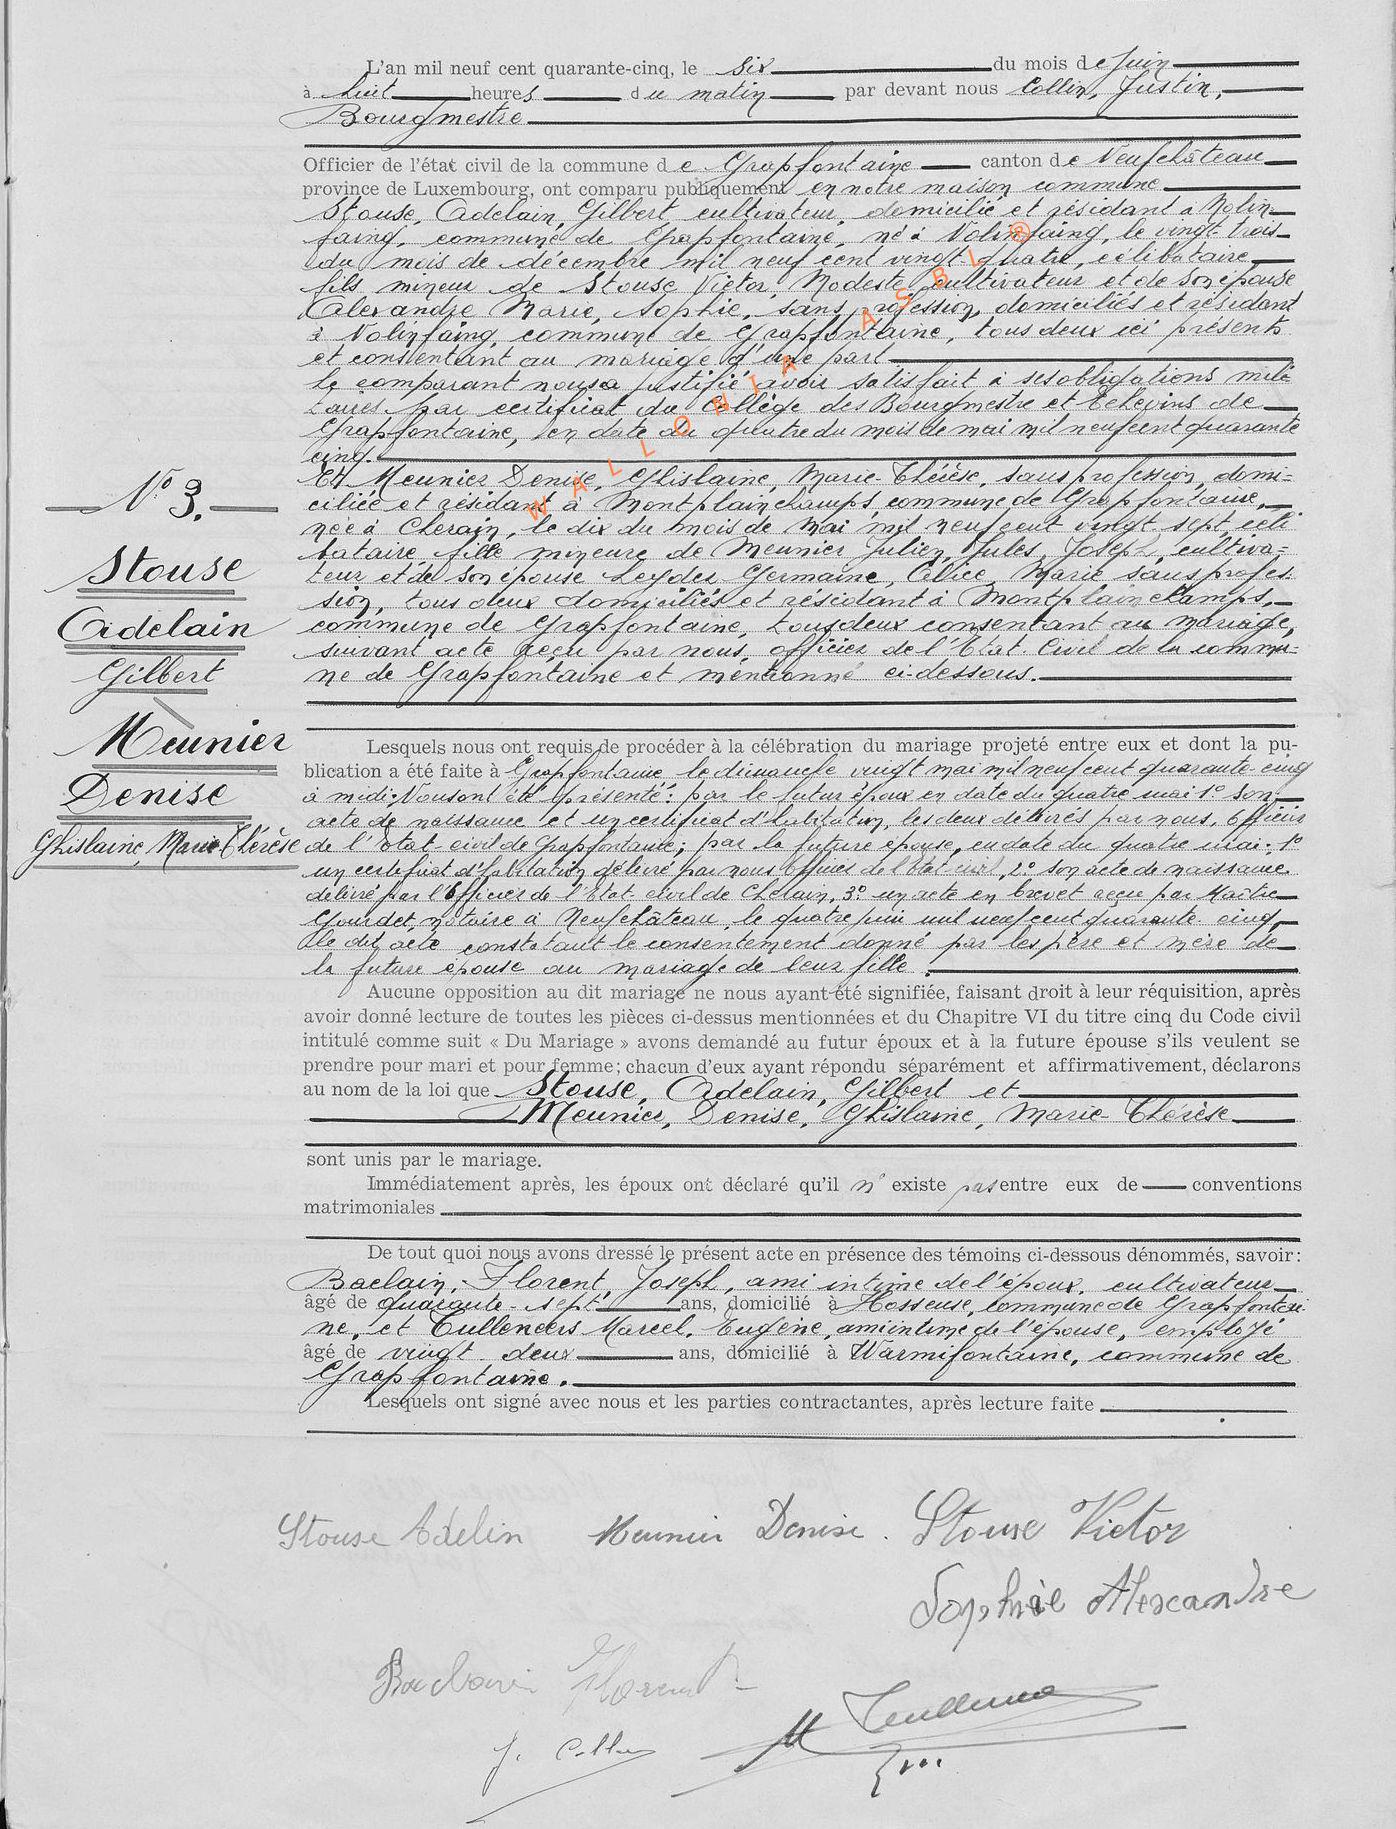 L'an mil neuf cent quarante-cinq, le six du mois de Juin
à huit heures du matin par devant nous Collin, Justin,
Bourgmestre
Officier de l'état civil de la commune de Grapfontaine canton de Neufchâteau
province de Luxembourg, ont comparu publiquement en notre maison commune
Stouse, Adelain, Gilbert cultivateur, domicilié et résidant à Nolin-
faing, commune de Grapfontaine, né à Nolinfaing, le vingt trois
du mois de décembre mil neuf cent vingt-quatre, célibataire,
fils mineur de Stouse Victor, Modeste cultivateur et de son épouse
Alexandre Marie, Sophie, sans profession, domiciliés et résidant
à Nolinfaing, commune de Grapfontaine, tous deux ici présents
et consentant au mariage d'une part
Le comparant nous a justifié avoir satisfait à ses obligations mili-
taires par certificat du Collège des Bourgmestre et Echevins de
Grapfontaine, en date du quatre du mois de mai mil neuf cent quarante
cinq.
Et Meunier Denise, Ghislaine, Marie-Thérèse, sans profession, domi-
ciliée et résidant à Montplainchamps, commune de Grapfontaine,
née à Cherain, le dix du mois de Mai mil neuf cent vingt-sept, céli
bataire, fille mineure de Meunier Julien, Jules, Joseph, cultiva-
teur et de son épouse Leyder Germaine, Célice, Marie sans profes-
sion, tous deux domiciliés et résidant à Montplainchamps,
commune de Grapfontaine, tous deux consentant au mariage,
suivant acte reçu par nous, officier de l'Etat-Civil de la commu-
ne de Grapfontaine et mentionné ci-dessous.
N° 3.
Stouse
Adelain
Gilbert
Meunier
Denise
Ghislaine, Marie-Thérèse
Lesquels nous ont requis de procéder à la célébration du mariage projeté entre eux et dont la pu-
blication a été faite à Grapfontaine le dimanche vingt mai mil neuf cent quarante-cinq
à midi. Nous ont été présenté : par le futur époux en date du quatre mai 1° son
acte de naissance et un certificat d'habitation, les deux délivrés par nous, Officier
de l'Etat-civil de Grapfontaine ; par la future épouse, en date du quatre mai : 1°
un certificat d'habitation délivré par nous Officier de l'Etat-civil, 2° son acte de naissance
délivré par l'Officier de l'Etat-civil de Cherain, 3° un acte en brevet reçu par Maître
Gourdet, notaire à Neufchâteau, le quatre juin mil neuf cent quarante-cinq,
le dit acte constatant le consentement donné par les père et mère de
la future épouse au mariage de leur fille.
Aucune opposition au dit mariage ne nous ayant été signifiée, faisant droit à leur réquisition, après
avoir donné lecture de toutes les pièces ci-dessus mentionnées et du Chapitre VI du titre cinq du Code civil
intitulé comme suit « Du Mariage » avons demandé au futur époux et à la future épouse s'ils veulent se
prendre pour mari et pour femme; chacun d'eux ayant répondu séparément et affirmativement, déclarons
au nom de la loi que Stouse, Adelain, Gilbert et
Meunier, Denise, Ghislaine, Marie-Thérèse
sont unis par le mariage.
Immédiatement après, les époux ont déclaré qu'il n'existe pas entre eux de conventions
matrimoniales
De tout quoi nous avons dressé le présent acte en présence des témoins ci-dessous dénommés, savoir:
Baclain, Florent, Joseph, ami intime de l'époux, cultivateur
âgé de quarante-sept ans, domicilié à Hosseuse, commune de Grapfontai-
ne, et Culleneers Marcel, Eugène, ami intime de l'épouse, employé
âgé de vingt deux ans, domicilié à Warmifontaine, commune de
Grapfontaine.
Lesquels ont signé avec nous et les parties contractantes, après lecture faite
Stouse Adelin Meunier Denise. Stouse Victor
Sophie Alexandre
Baclain Florent
J. Collin
WALLONIA ASBL ®